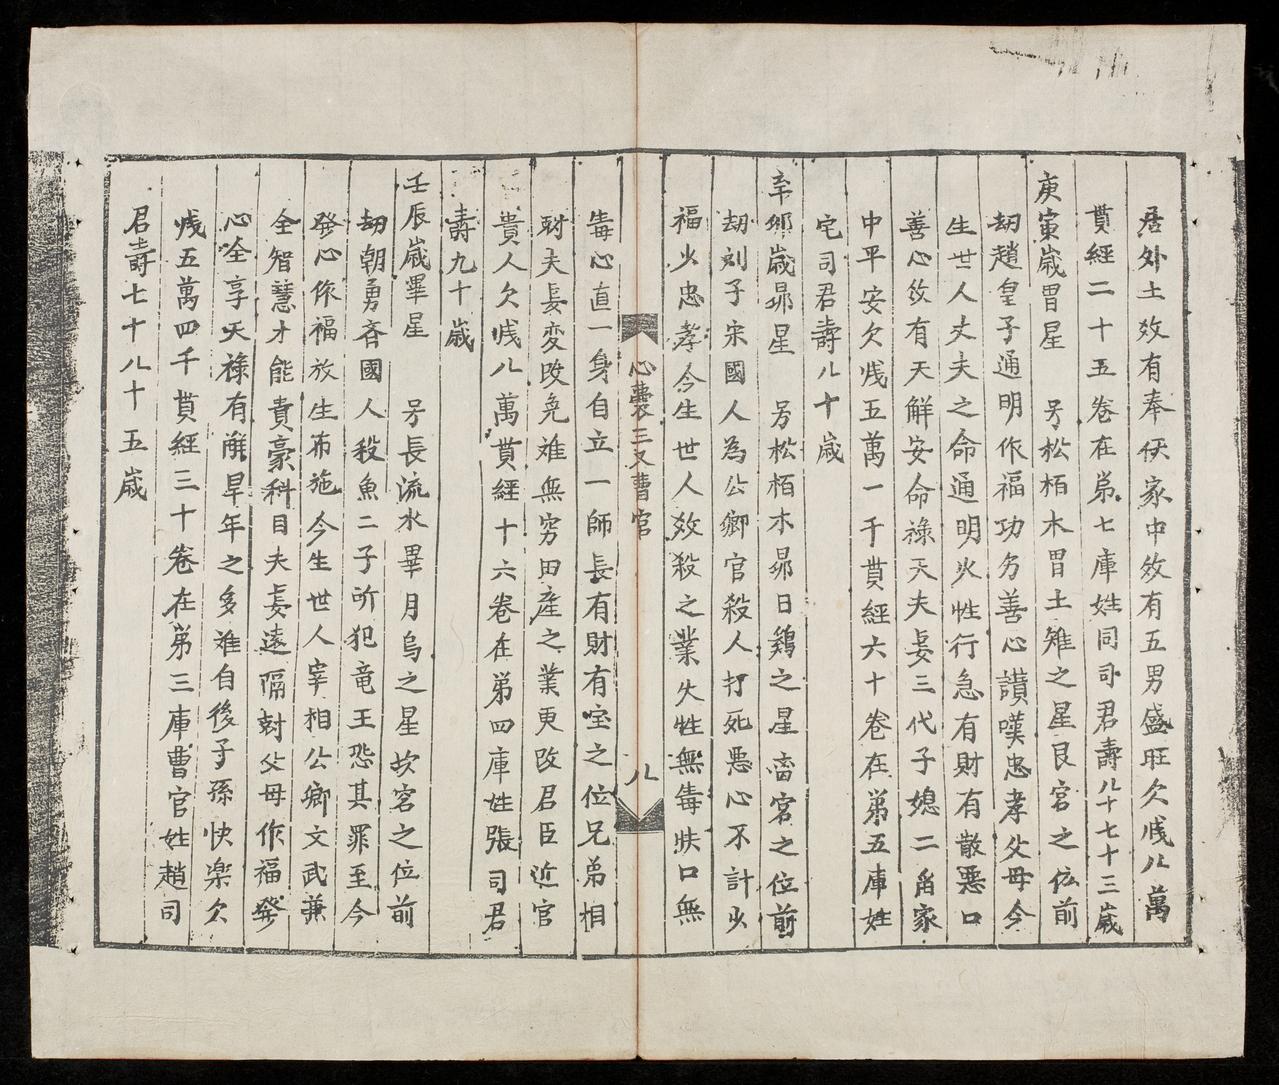 居外土效有奉仸家中效有五男盛旺欠戋八萬
貫經二十五卷在弟七庫姓同司君壽八十七十三歳
庚寅歳胃星　另松栢木胃土雉之星艮宮之位前
刼趙皇子通明作福功另善心讃嘆忠孝父母今
生世人丈夫之命通明火性行急有財有散悪口
善心效有天解安命禄天夫妾三代子媳二家
中平安欠戋五萬一千貫經六十卷在弟五庫姓
宅司君壽八十歳
辛卯歳昴星　另松栢木昴日鷄之星宮之位前
刼刖子宋國人為公卿官殺人打死悪心不計少
福少忠孝今生世人效殺之業火性無毒快口無
心曩三又曹官　八
毒心直一身自立一師長有財有宝之位兄弟相
尉夫妾変改免难無窮田産之業更改君臣近官
貴人欠戋八萬貫經十六卷在弟四庫姓張司君
壽九十歳
壬辰歳畢星　另長流水畢月烏之星坎宮之位前
刼朝勇吞國人殺魚二子所犯竜王恐其罪至今
發心作福放生布施今生世人宰相公卿文武兼
全智慧才能貴豪科目夫妾遠隔尅父母作福發
心全享天禄有解早年之多难自後子孫快楽欠
戋五萬四千貫經三十卷在弟三庫曹官姓趙司
君壽七十八十五歳